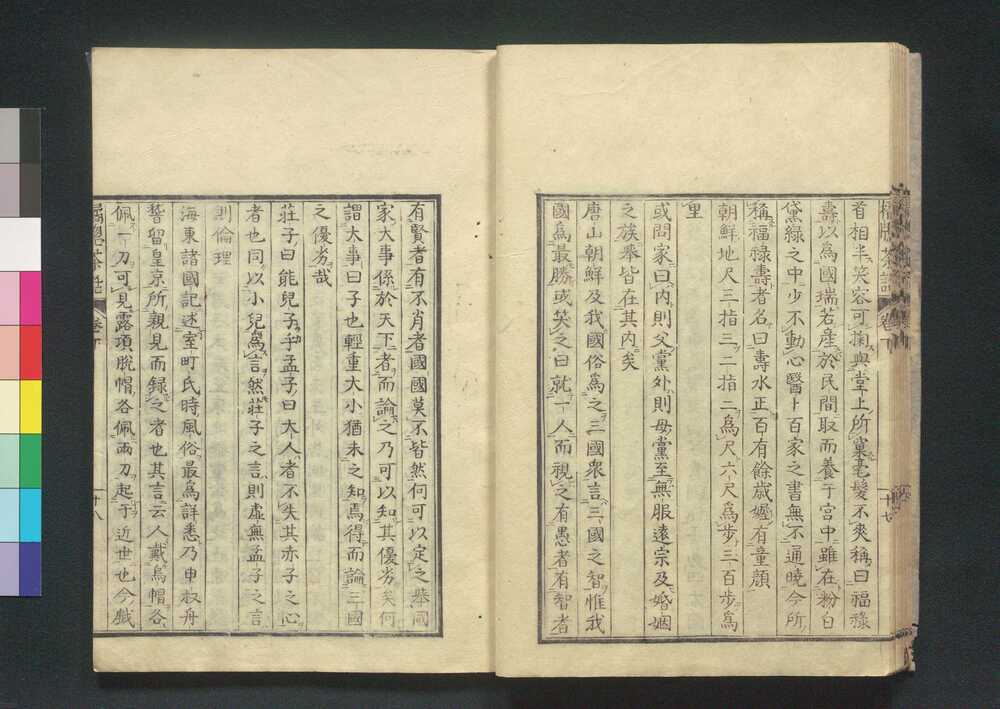 首相半笑容可掬與堂上所稟毫髮不爽稱曰福祿
壽以為國瑞若產於民間取而養于宮中雖在粉白
黛綠之中少不動心醫卜百家之書無不通曉今所
稱福祿壽者名曰壽水正百有餘歲孋有童顏
朝鮮地尺三指三二指二為尺六尺為步三百步爲
里
或問家曰內則父黨外則母黨至無服遠宗及婚姻
之族舉皆在其內矣
唐山朝鮮及我國俗爲之三國衆言三國之智惟我
國爲最勝或笑之曰就一人而視之有愚者有智者
有賢者有不肖者國國莫不皆然何可以定之舉國
家大事係於天下者而論之乃可以知其優劣矣何
謂大事曰子也輕重大小猶未之知焉得而論三國
之優劣哉
莊子曰能兒子乎孟子曰大人者不失其赤子之心
者也同以小兒爲言然莊子之言則虛無孟子之言
則倫理
海東諸國記述室町氏時風俗最爲詳悉乃申叔舟
誓留皇京所親見而録之者也其言云人戴烏帽各
佩一刀可見露頂脫帽各佩兩刀起于近世也今戲
橘牕茶話
卷下
十七
橘牕茶話
卷下
十八